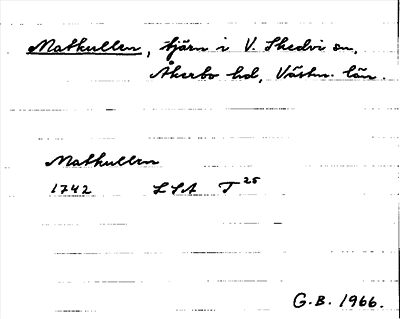 Matkullen, tjärn i V. Skedvi sn,
Åkerbo hd, Västm. län.
Matkullen
1742 LSA T 25
G.B. 1966.